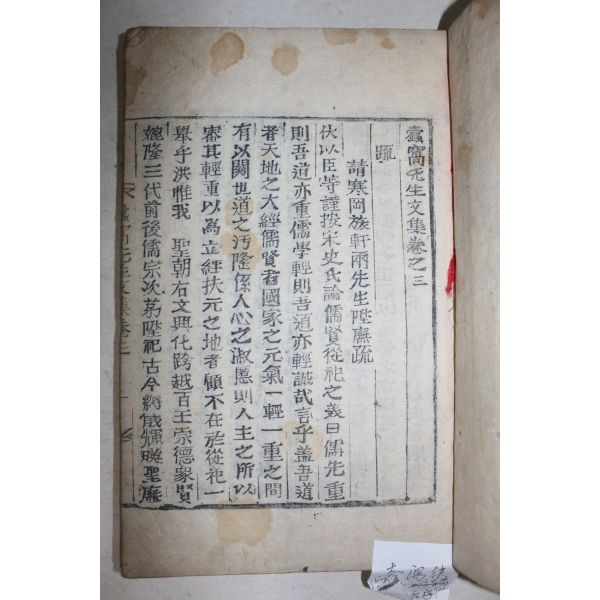 窩先生文集卷之三
疏
請寒岡旅軒兩先生陞廡疏
伏以臣等謹按宋史氏論儒賢從祀之義曰儒先重
則吾道亦重儒學輕則吾道亦輕誠哉言乎盖吾道
者天地之大經儒賢者國家之元氣一輕一重之間
有以關世道之汚隆係人心之淑慝則人主之所以
審其輕重以爲立經扶元之地者顧不在於從祀一
擧乎洪惟我 聖朝右文興化跨越百王崇德象賢
媲隆三代前後儒宗次苐陞祀古今縟儀輝暎聖廡
窩先生文集卷三
一